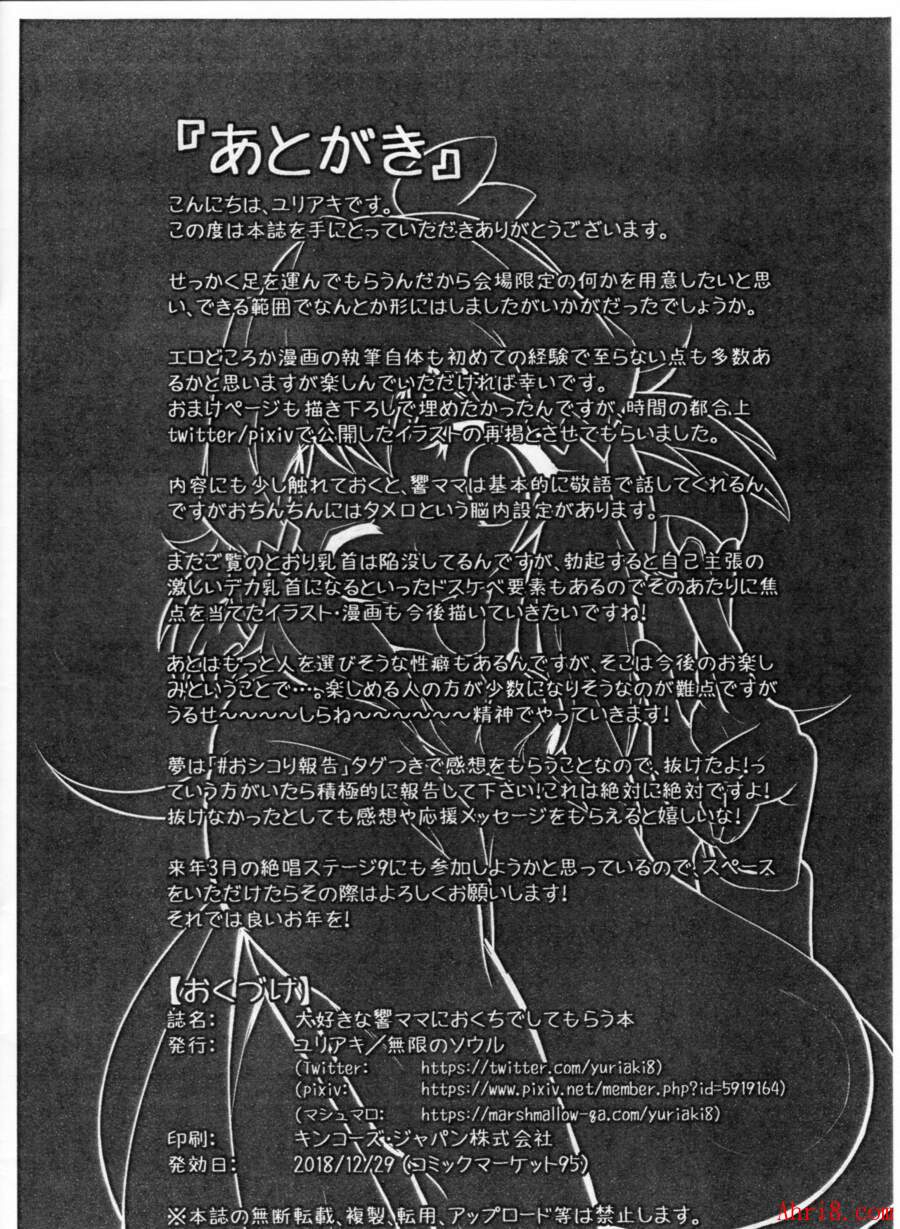 『あとがき』
こんにちは、ユリアキです。
この度は本誌を手にとっていただきありがとうございます。
せっかく足を運んでもらうんだから会場限定の何かを用意したいと思
い、できる範囲でなんとか形にはしましたがいかがだったでしょうか。
エロどころか漫画の執筆自体も初めての経験で至らない点も多数あ
るかと思いますが楽しんでいただければ幸いです。
おまけページも描き下ろしで埋めたかったんですが、時間の都合上
twitter/pixivで公開したイラストの再掲とさせてもらいました。
内容にも少し触れておくと、響ママは基本的に敬語で話してくれるん
ですがおちんちんにはタメ口という脳内設定があります。
まだご覧のとおり乳首は陥没してるんですが、勃起すると自己主張の
激しいデカ乳首になるといったドスケベ要素もあるのでそのあたりに焦
点を当てたイラスト・漫画も今後描いていきたいですね!
あとはもっと人を選びそうな性癖もあるんですが、そこは今後のお楽し
みということで…。楽しめる人の方が少数になりそうなのが難点ですが
うるせ～～～～しらね～～～～～～精神でやっていきます!
夢は「#おシコり報告」タグつきで感想をもらうことなので、抜けたよ!っ
ていう方がいたら積極的に報告して下さい!これは絶対に絶対ですよ!
抜けなかったとしても感想や応援メッセージをもらえると嬉しいな!
来年3月の絶唱ステージ9にも参加しようかと思っているので、スペース
をいただけたらその際はよろしくお願いします!
それでは良いお年を!
【おくづけ】
誌名: 大好きな響ママにおくちでしてもらう本
発行: ユリアキ／無限のソウル
(Twitter: https://twitter.com/yuriaki8)
(pixiv: https://www.pixiv.net/member.php?id=5919164)
(マシュマロ: https://marshmallow-qa.com/yuriaki8)
印刷: キンコーズ・ジャパン株式会社
発効日: 2018/12/29 (コミックマーケット95)
※本誌の無断転載、複製、転用、アップロード等は禁止します。
Ahri8.com